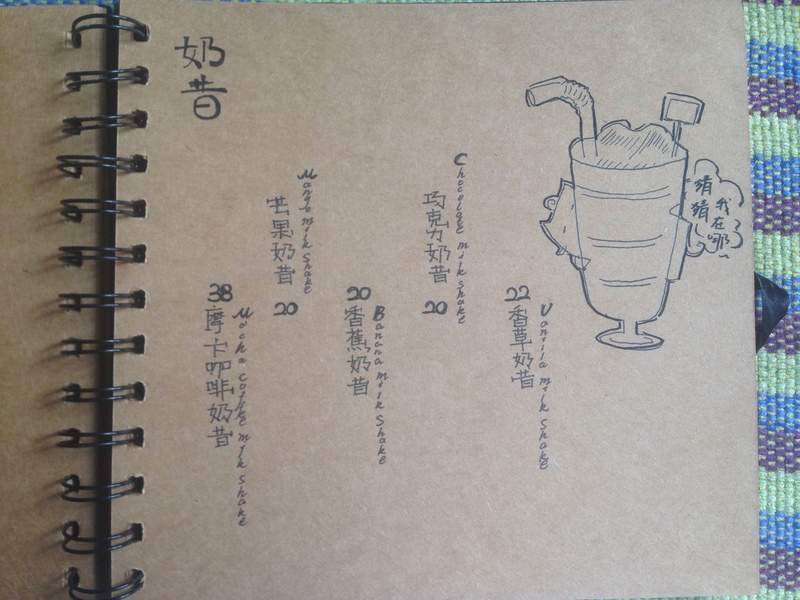 奶昔
Vanila milk Shake
香草奶昔
22
Chocolate milk Shake
巧克力奶昔
20
Banana milk Shake
香蕉奶昔
20
Mango milk Shake
芒果奶昔
20
Mocha Coffee milk Shake
摩卡咖啡奶昔
38
猜猜
我在哪~